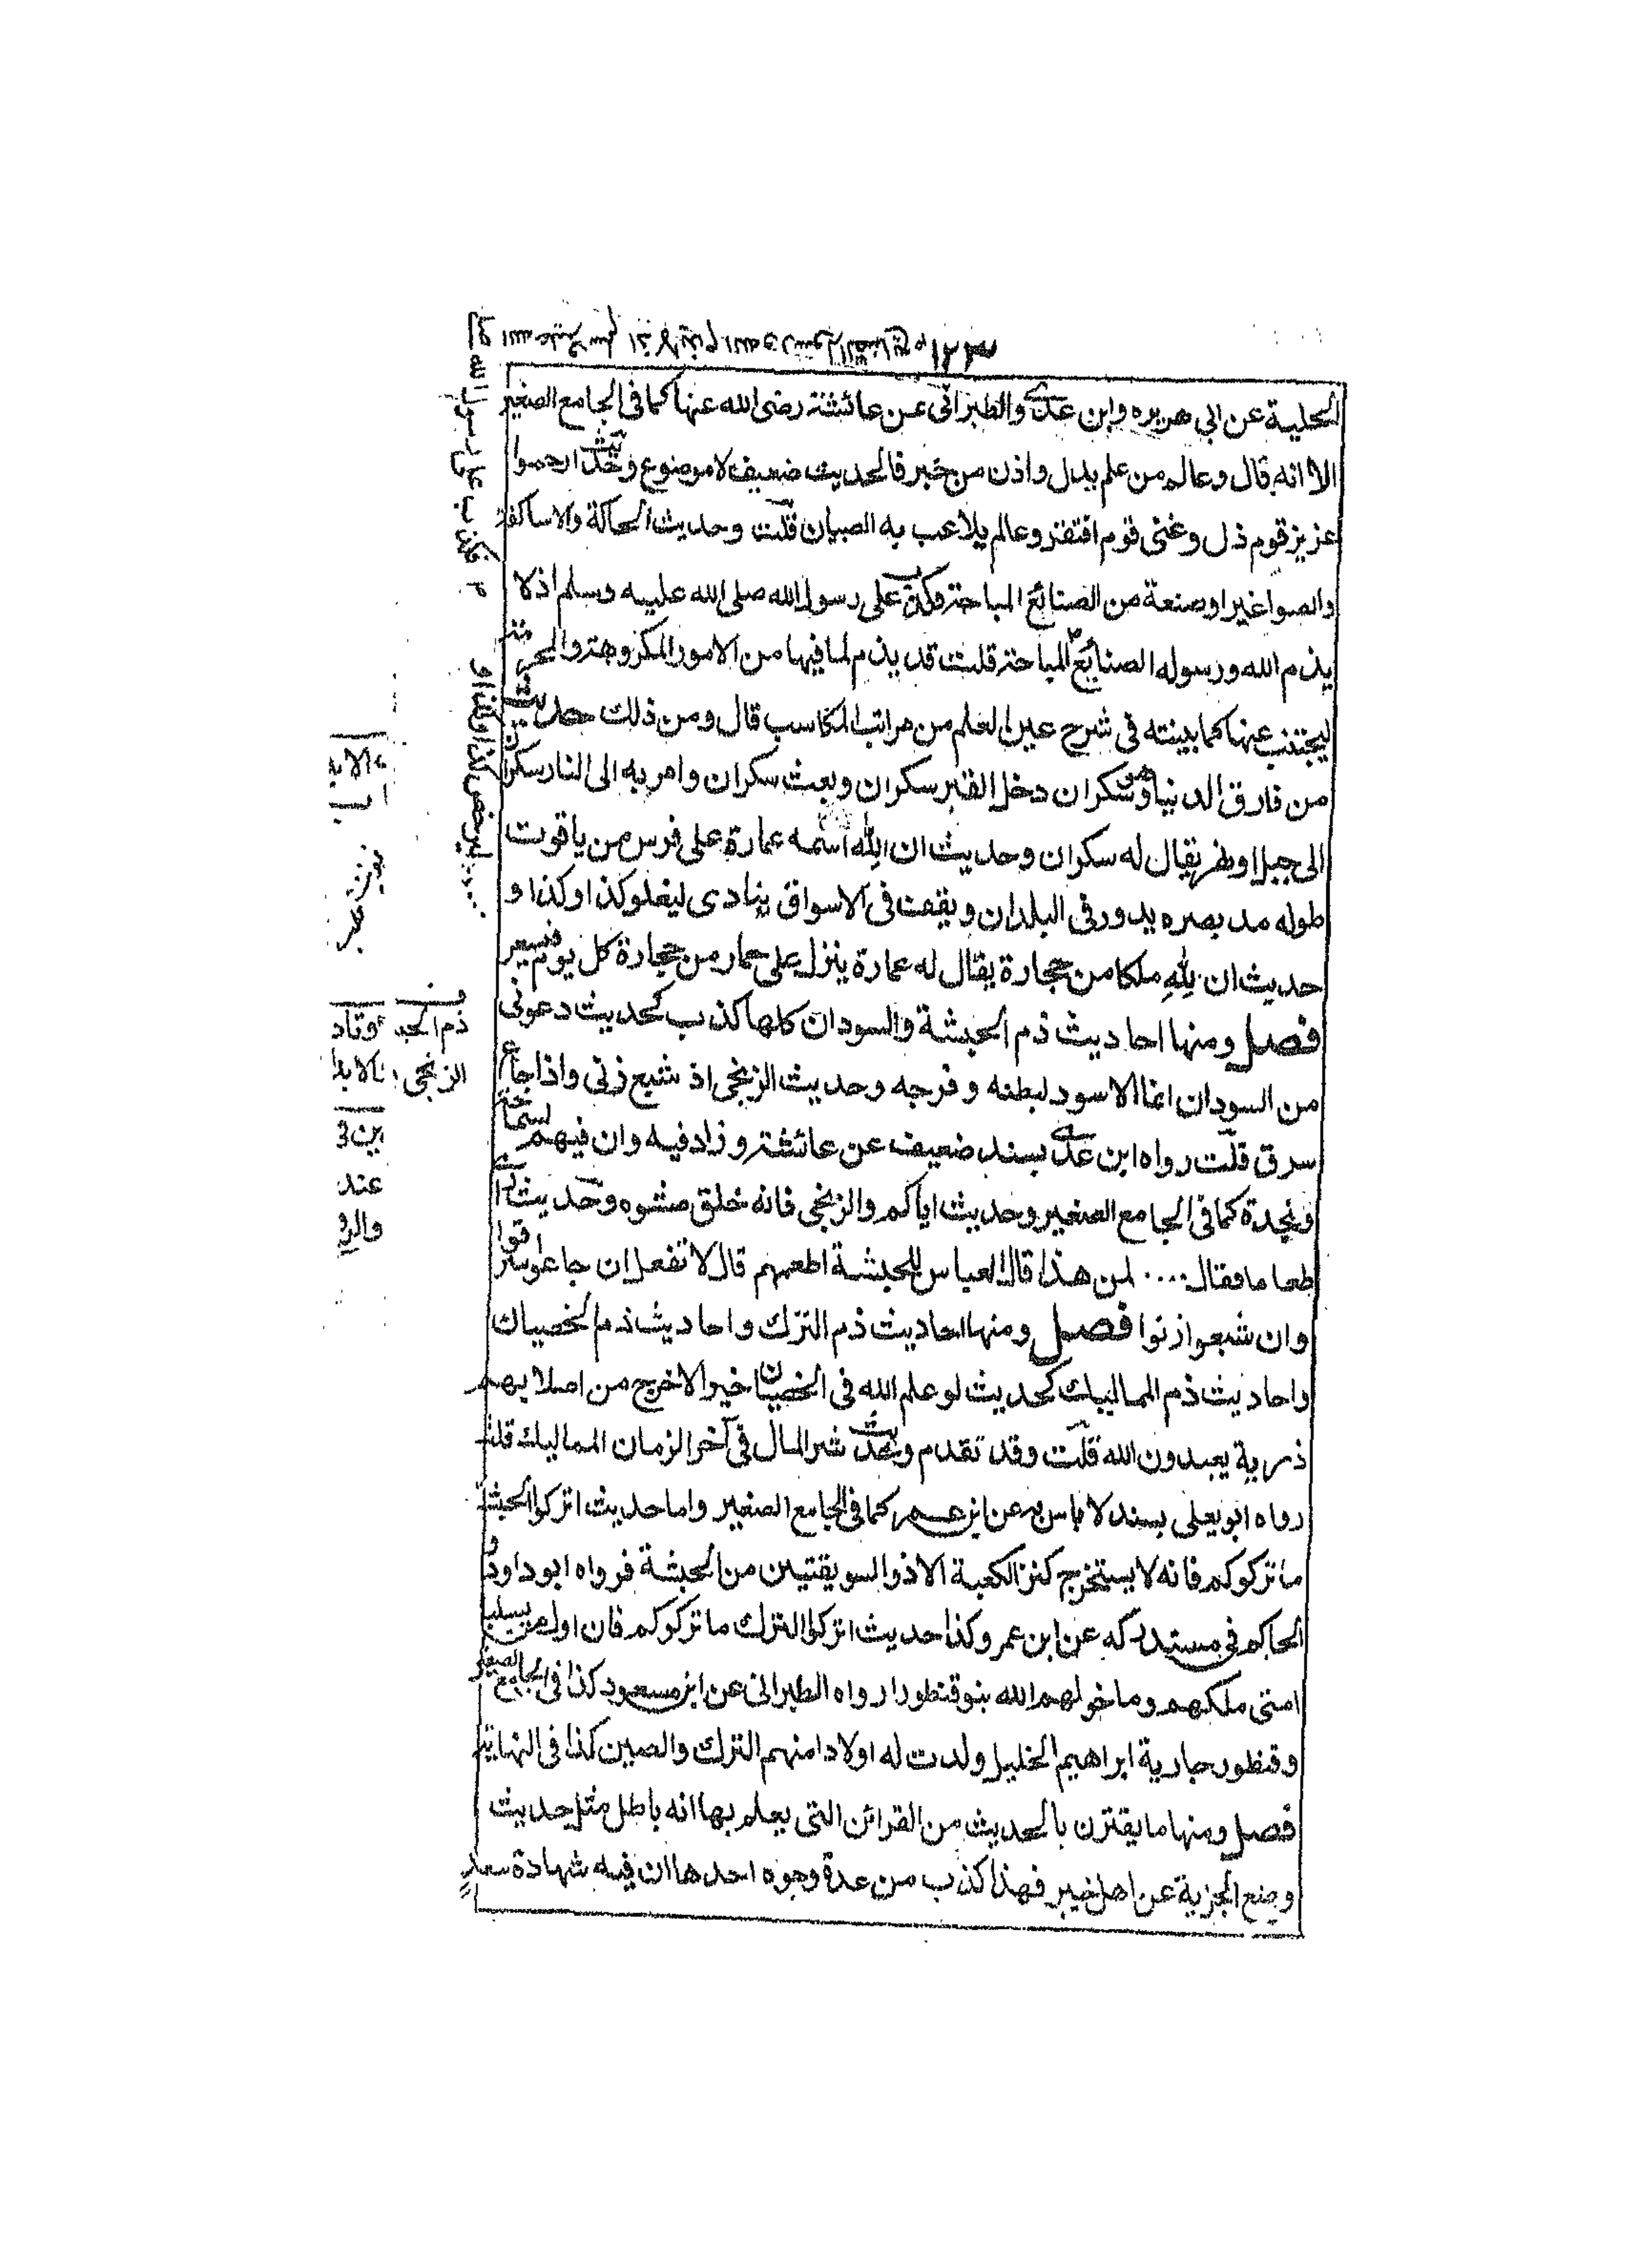 الحلية عن ابي هريره وابن عدي والطبراني عن عائشة رضى الله عنها كما فى الجامع الصغير
الا انه قال وعالم من علم بدل واذن من خبر فالحديث ضعيف لا موضوع وحديث ارحموا
عزيز قوم ذل وغنى قوم افتقر وعالم يلاعب به الصبيان قلت وحديث الحاكة والاساكفة
والصواغير اوصنعة من الصنائع المباحة وكذب على رسول الله صلى الله عليه وسلم اذ لا
يذم الله ورسوله الصنايع المباحة قلت قد يذم لما فيها من الامور المكروهة والمحرمة
ليجتنب عنها كما بينته فى شرح عين العلم من مراتب المكاسب قال ومن ذلك حديث
من فارق الدنيا وهو سكران دخل القبر سكران وبعث سكران وامر به الى النار سكران
الى جبل يقال له سكران وحديث ان لله اسمه عمارة على فرس من ياقوت
طوله مد بصره يدور فى البلدان ويقف فى الاسواق ينادى ليغلو كذا وكذا و
حديث ان لله ملكا من حجارة يقال له عمارة ينزل على حمار من حجارة كل يوم فيسعر
فصل ومنها احاديث ذم الحبشة والسودان كلها كذب كحديث دعونى
من السودان انما الاسود لبطنه وفرجه وحديث الزنجى اذ شبع زنى واذا جاع
سرق قلت رواه ابن عدي بسند ضعيف عن عائشة وزاد فيه وان فيهم لسماحة
ونجدة كما فى الجامع الصغير وحديث اياكم والزنجى فانه خلق مشوه وحديث راى
طعاما فقال .... لمن هذا قال العباس للحبشة اطعمهم قال لا تفعل ان جاعوا سرقوا
وان شبعوا زنوا فصل ومنها احاديث ذم الترك واحاديث ذم الخصيان
واحاديث ذم المماليك كحديث لو علم الله فى الخصيان خيرا لاخرج من اصلابهم
ذرية يعبدون الله قلت وقد تقدم وحديث شر المال فى آخر الزمان المماليك قلت
رواه ابو يعلى بسند لا باس به عن ابن عمر كما فى الجامع الصغير واما حديث اتركوا الحبشة
ما تركوكم فانه لا يستخرج كنز الكعبة الا ذو السويقتين من الحبشة فرواه ابو داود و
الحاكم فى مستدركه عن ابن عمر وكذا حديث اتركوا الترك ما تركوكم فان اول من يسلب
امتى ملكهم وما خولهم الله بنو قنطورا رواه الطبرانى عن ابن مسعود كذا فى الجامع الصغير
وقنطور جارية ابراهيم الخليل ولدت له اولادا منهم الترك والصين كذا فى النهاية
فصل ومنها ما يقترن بالحديث من القرائن التى يعلم بها انه باطل مثل حديث
وضع الجزية عن اهل خيبر فهذا كذب من عدة وجوه احدها ان فيه شهادة سعد